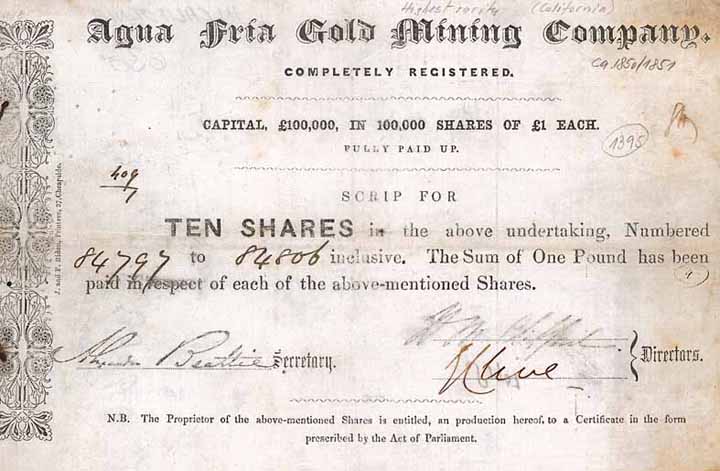 Highest rarity (California)
Agua Fria Gold Mining Company.
COMPLETELY REGISTERED.
ca 1850/1851
CAPITAL, £100,000, IN 100,000 SHARES OF £1 EACH.
FULLY PAID UP.
1395
409
7
SCRIP FOR
TEN SHARES in the above undertaking, Numbered
84797 to 84806 inclusive. The Sum of One Pound has been
paid in respect of each of the above-mentioned Shares.
Alexander Beattie Secretary.
Directors.
N.B. The Proprietor of the above-mentioned Shares is entitled, an production hereof, to a Certificate in the form
prescribed by the Act of Parliament.
Printers, 37, Cheapside.